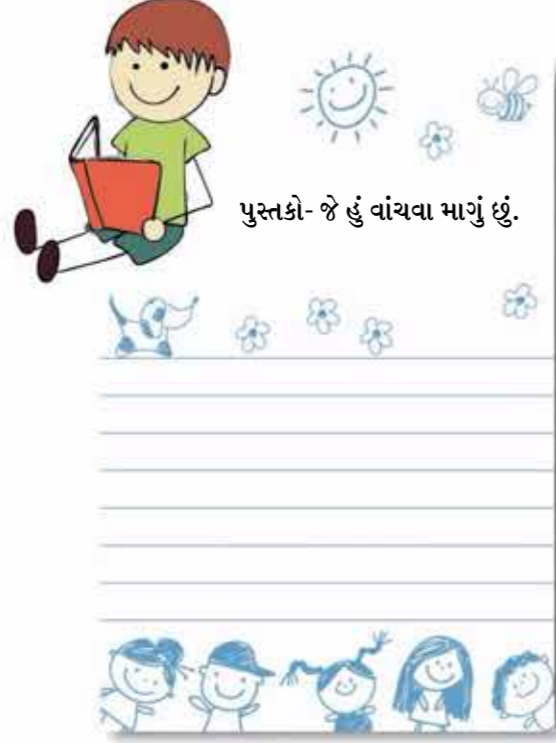 પુસ્તકો- જે હું વાંચવા માગું છું.